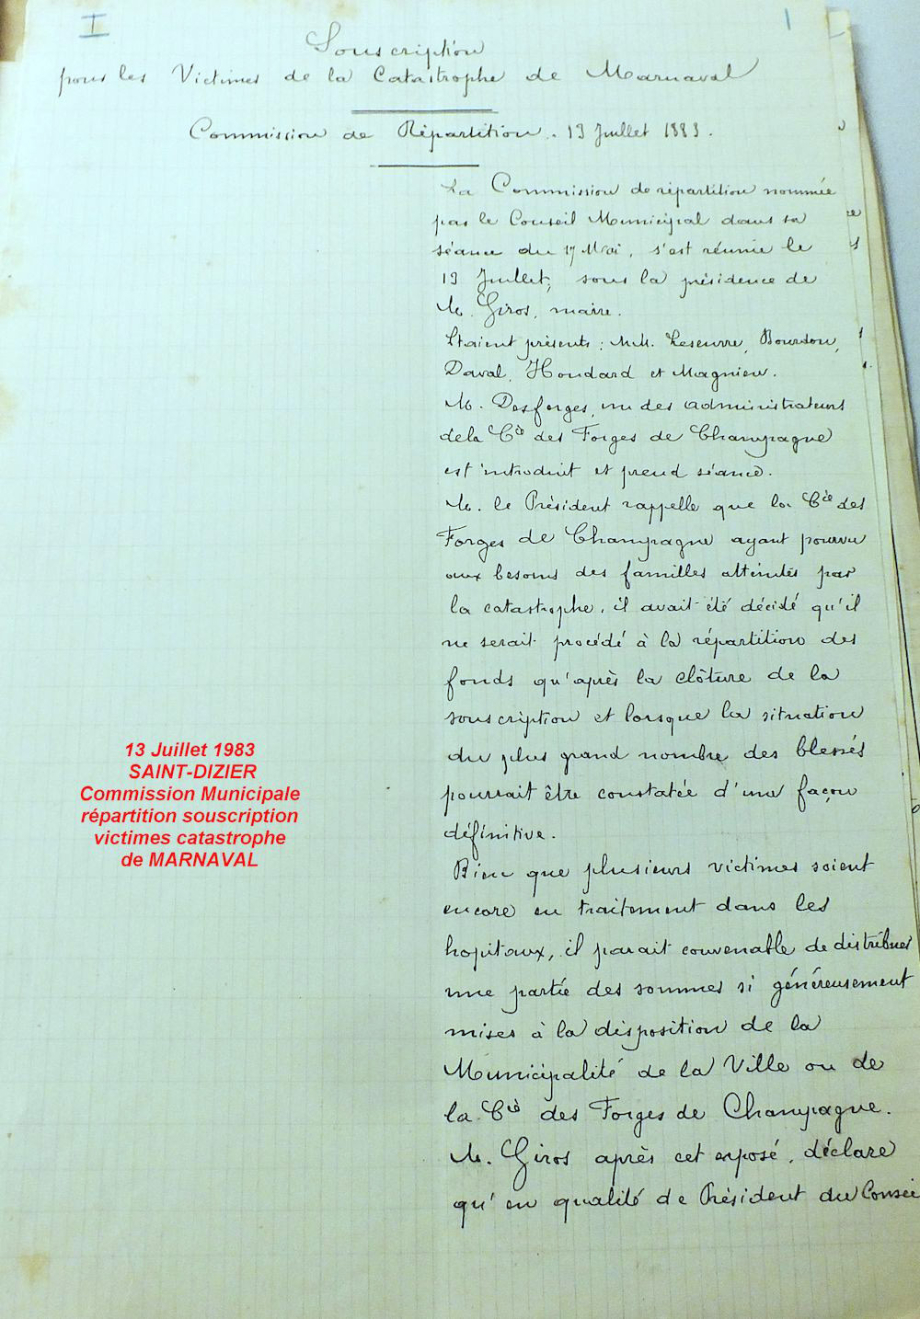 I
Souscription
pour les Victimes de la Catastrophe de Marnaval
Commission de Répartition. 13 Juillet 1883.
La Commission de répartition nommée
par le Conseil Municipal dans sa
séance du 17 Mai, s'est réunie le
13 Juillet, sous la présidence de
M. Giros, maire.
Etaient présents : MM. Leseurre, Bourdon,
Daval, Houdard et Magnien.
M. Desforges, un des administrateurs
de la Cie des Forges de Champagne
est introduit et prend séance.
M. le Président rappelle que la Cie des
Forges de Champagne ayant pourvu
aux besoins des familles atteintes par
la catastrophe, il avait été décidé qu'il
ne serait procédé à la répartition des
fonds qu'après la clôture de la
souscription et lorsque la situation
du plus grand nombre des blessés
pourrait être constatée d'une façon
définitive.
13 Juillet 1983
SAINT-DIZIER
Commission Municipale
répartition souscription
victimes catastrophe
de MARNAVAL
Bien que plusieurs victimes soient
encore en traitement dans les
hopitaux, il parait convenable de distribuer
une partie des sommes si généreusement
mises à la disposition de la
Municipalité de la Ville ou de
la Cie des Forges de Champagne.
M. Giros après cet exposé, déclare
qu'en qualité de Président du Conseil